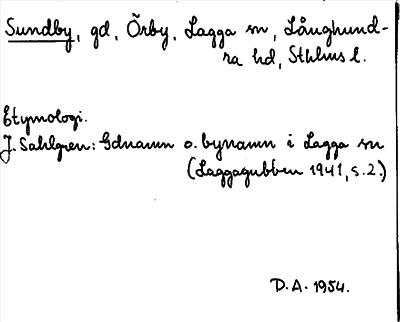 Sundby, gd, Örby, Lagga sn, Långhund-
ra hd, Sthlms l.
Etymologi.
J. Sahlgren: Gdnamn o. bynamn i Lagga sn
(Laggagubben 1941, s. 2.)
D.A. 1954.